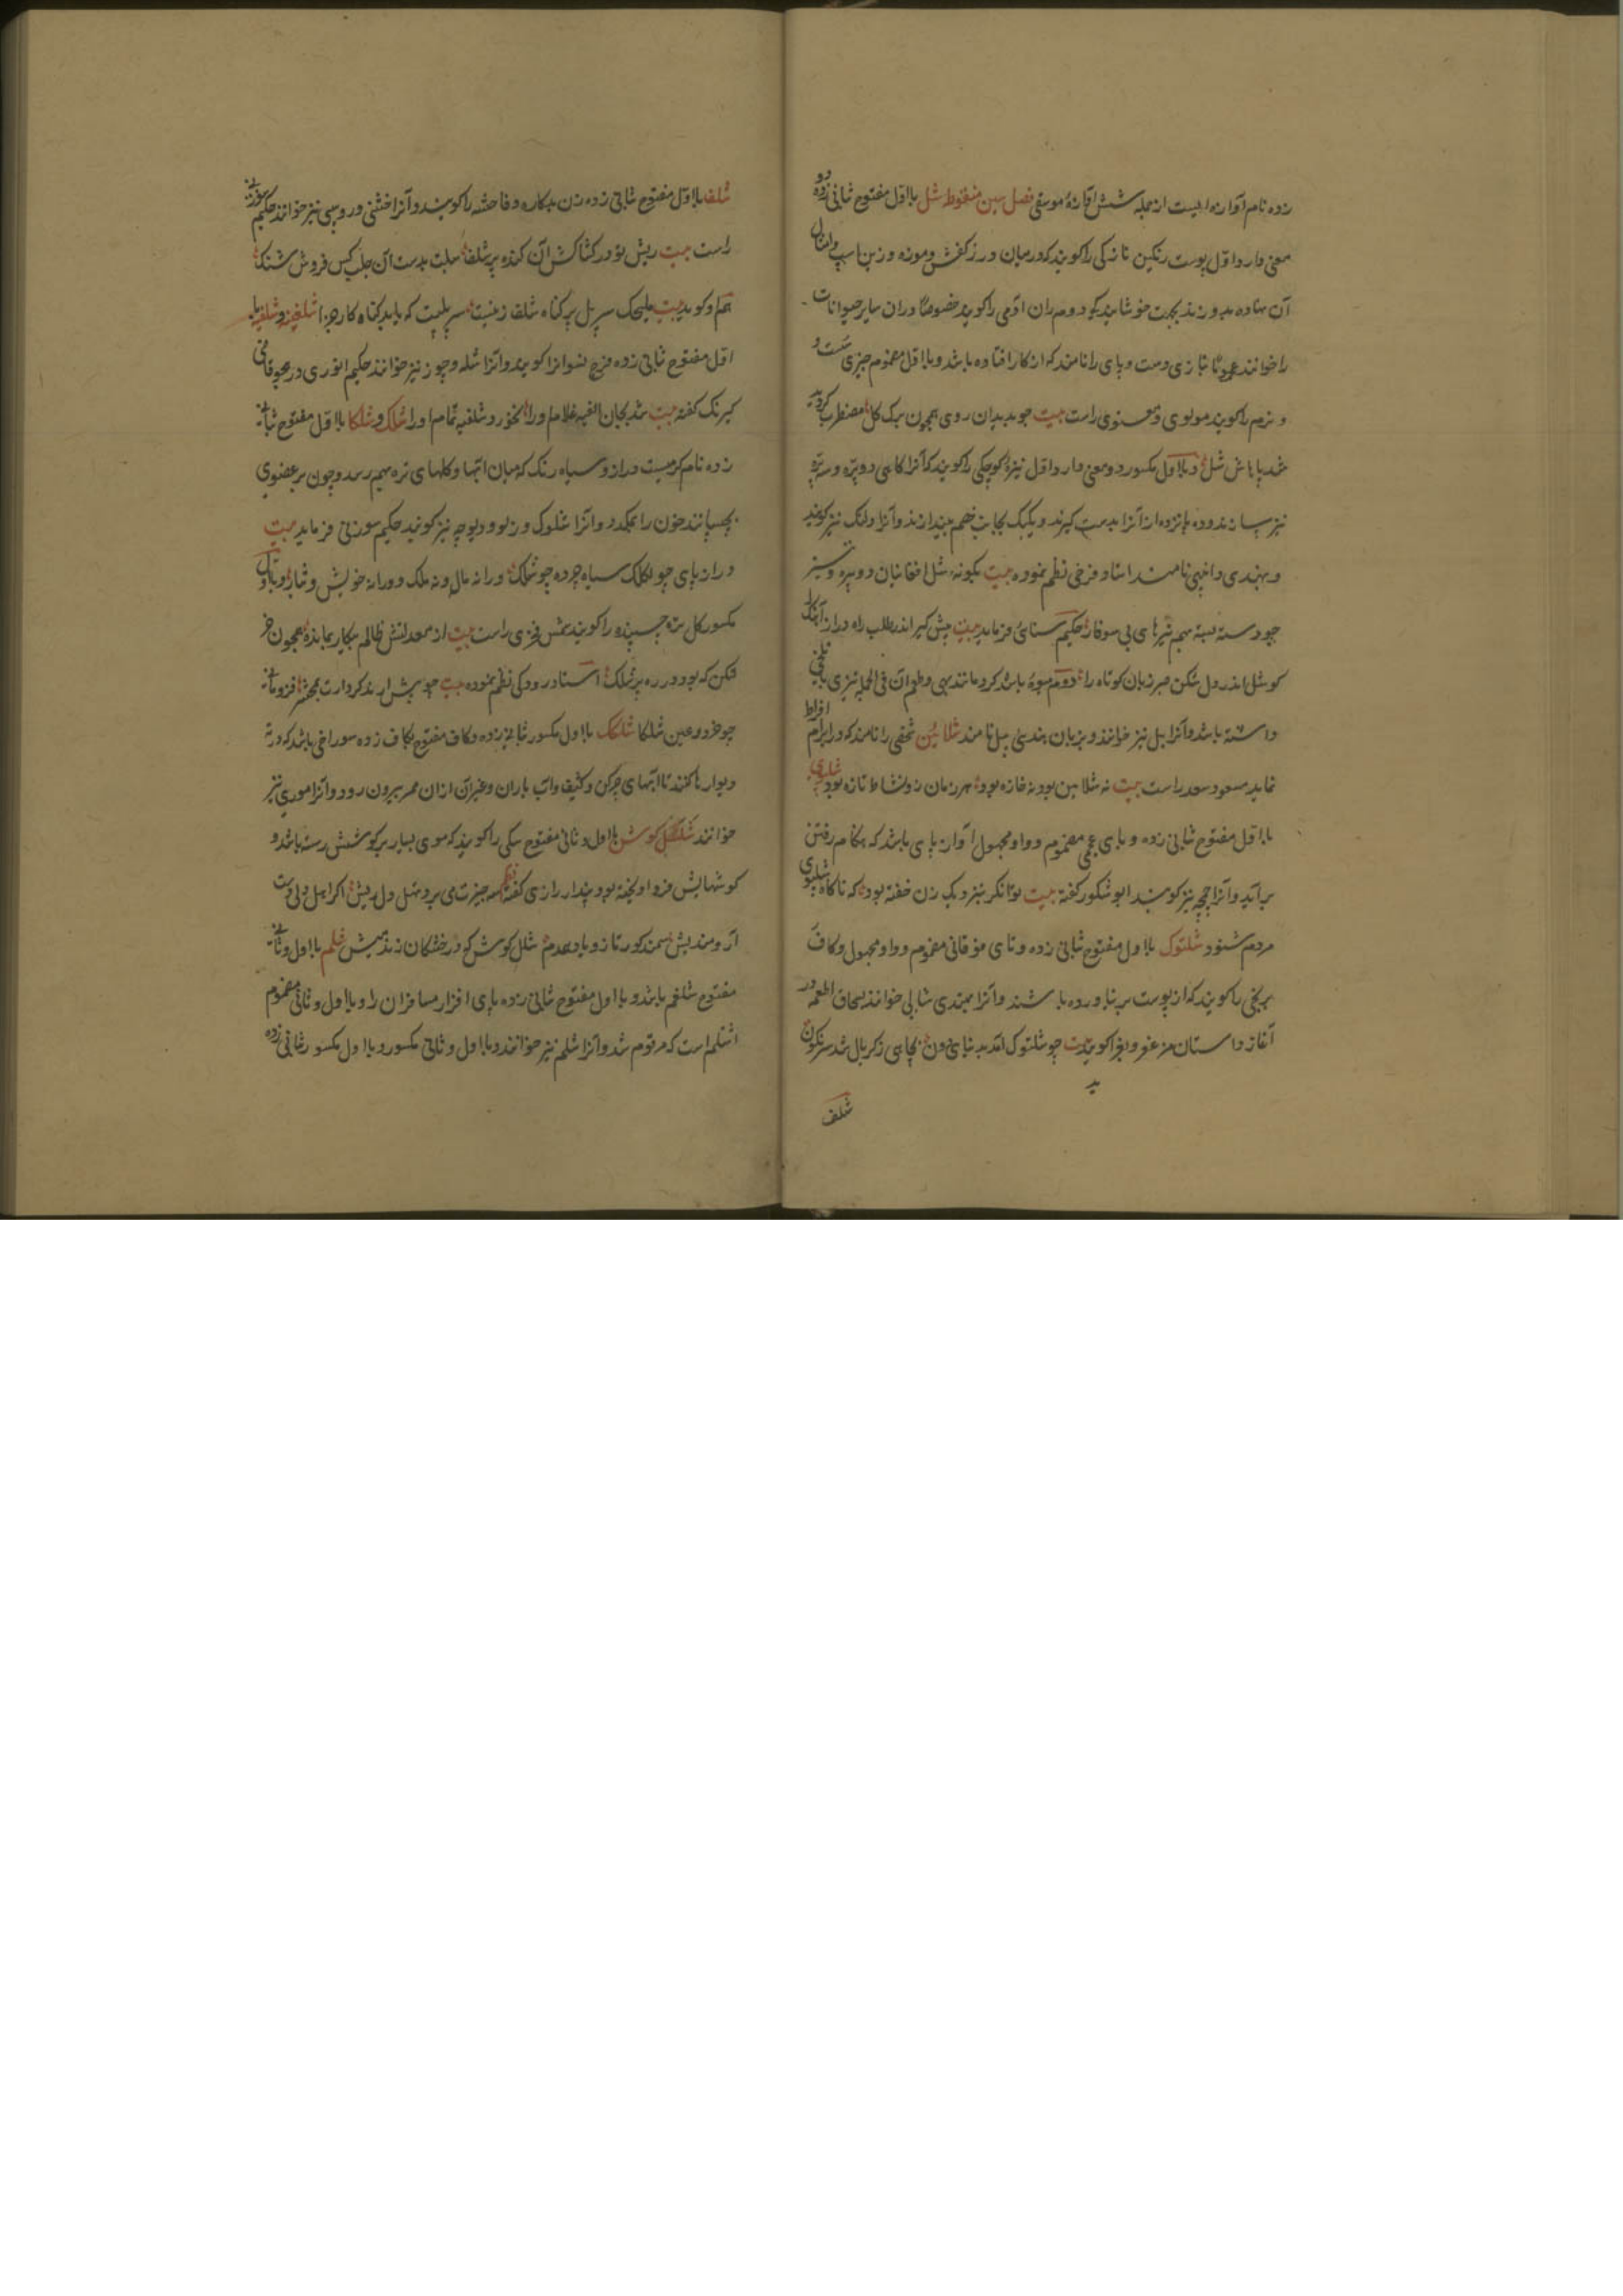 زده نام آوازه ایست از جمله شش آوازهٔ موسیقی فصل سین منقوطه شل با اول مفتوح ثانی زده دو
معنی دارد اول پوست رنگین نازکی را گویند که در میان درز کفش و موزه و زین اسپ و امثال
آن نهاده بدوزند بجهت خوشایندگی دوم ران آدمی را گویند خصوصاً و ران سایر حیوانات
را خوانند عموماً بتازی دست و پای را نامند که از کار افتاده باشد و با اول مضموم چیزی سست و
و نرم را گویند مولوی معنوی راست بیت چو بدیدان روی همچون برک کل مضطرب گردید
شد پا باش شل و با اول مکسور دو معنی دارد اول نیزهٔ کوچکی را گویند که آنرا گاهی دو پره و سه پره
نیز سازند و ده پانزده از آنرا بدست گیرند و یک یک بجانب خصم بیندازند و آنرا ولنک نیز گویند
و بهندی نامند استاد فرخی نظم نموده بیت بکونه شل افغانان دو پره و تیز
چو دسته بسته بهم تیرهای بی سوفار حکیم سنائی فرماید بیت پیش گیر اندر طلب راه دراز آهنگ
کوشل اندر دل شکن صبر زبان کوتاه را دوم میوهٔ باشد گرد مانند بهی و طعم آن فی الجمله تیزی با تلخی
داشته باشد و آنرا بل نیز خوانند و بزبان هندی بیل نامند شلائین شخصی را نامند که در ابرام افراط
نماید مسعود سعد راست بیت نه شلائین بود نه خازه بود هر زمان زو نشاط تازه بود شلپوی
با اول مفتوح ثانی زده و بای عجمی مضموم و واو مجهول آواز پای باشد که هنگام رفتن
برآید و آنرا چپچپه نیز گویند ابو شکور گفته بیت توانگر بنزدیک زن خفته بود که ناگاه شلپوی
مردم شنود شلتوک با اول مفتوح ثانی زده و تای فوقانی مضموم و واو مجهول و کاف
برنجی را گویند که از پوست بر نیاورده باشند و آنرا بهندی شالی خوانند بسحاق اطعمه در
آغاز داستان مزعفر و بغرا گوید بیت چو شلتوک آمد به بنای دون بچاهی ز کربال شد سرنگون
ید
شلف
شلف با اول مفتوح ثانی زده زن بدکاره و فاحشه را گویند و آنرا خشنی و روسپی نیز خوانند حکیم سوزنی
راست بیت ریش تو در کشاکش آن گنده پیر شلف سبلت بدست آن جلب کس فروش شنگ
هم او گوید بیت سر پل پر گناه شلف زنیست سر پلیست که باید گناه کار چرا شلفینه و شلفیه با
اول مفتوح ثانی زده فرج نسوانرا گویند و آنرا شله و چوز نیز خوانند حکیم انوری در هجو قاضی
کیرنک گفته بیت شد بجان الفیه غلام او را بخورد شلفیه تمام او را شلک و شلکا با اول مفتوح ثانی
زده نام کرمیست دراز و سیاه رنگ که میان آبها و گلهای تره بهم رسد و چون بر عضوی
بچسپانند خون را بمکد و آنرا شلوک و زلو و دیوچه نیز گویند حکیم سوزنی فرماید بیت
دراز پای چو لکلک سیاه چرده چو شلک ورا نه مال و نه ملک و ورا نه خویش و تبار و با اول
مکسور گل تره چسپنده را گویند شمس فخری راست بیت از معدلتش ظالم بیکار بمانده همچون خر
لنگ که بود در ره پر شلک استاد رودکی نظم نموده بیت
چو خر درو حین شلکا شلکک با اول مکسور ثانی زده و کاف مفتوح بکاف زده سوراخی باشد که در ته
دیوارها کنند تا آبهای چرکن و کثیف و آب باران و غیر آن از آن ممر بیرون رود و آنرا موری نیز
خوانند شلل گوش با اول و ثانی مفتوح سگی را گویند که موی بسیار بر گوشش رسته باشد و
گوشهایش فرو آویخته بود پندار رازی گفته نظم سه چیزت می برد میل دل ریش اگر اهل دلی وت
آرومند بیش سمند کور تازو باد معدم شلل گوش که درخشکان زند میش شلم با اول و ثانی
مفتوح شلغم باشد و با اول مفتوح ثانی زده پای افزار مسافران را و با اول و ثانی مضموم
اشلم است که مرقوم شد و آنرا شلم نیز خوانند و با اول و ثانی مکسور و با اول مکسور ثانی زده